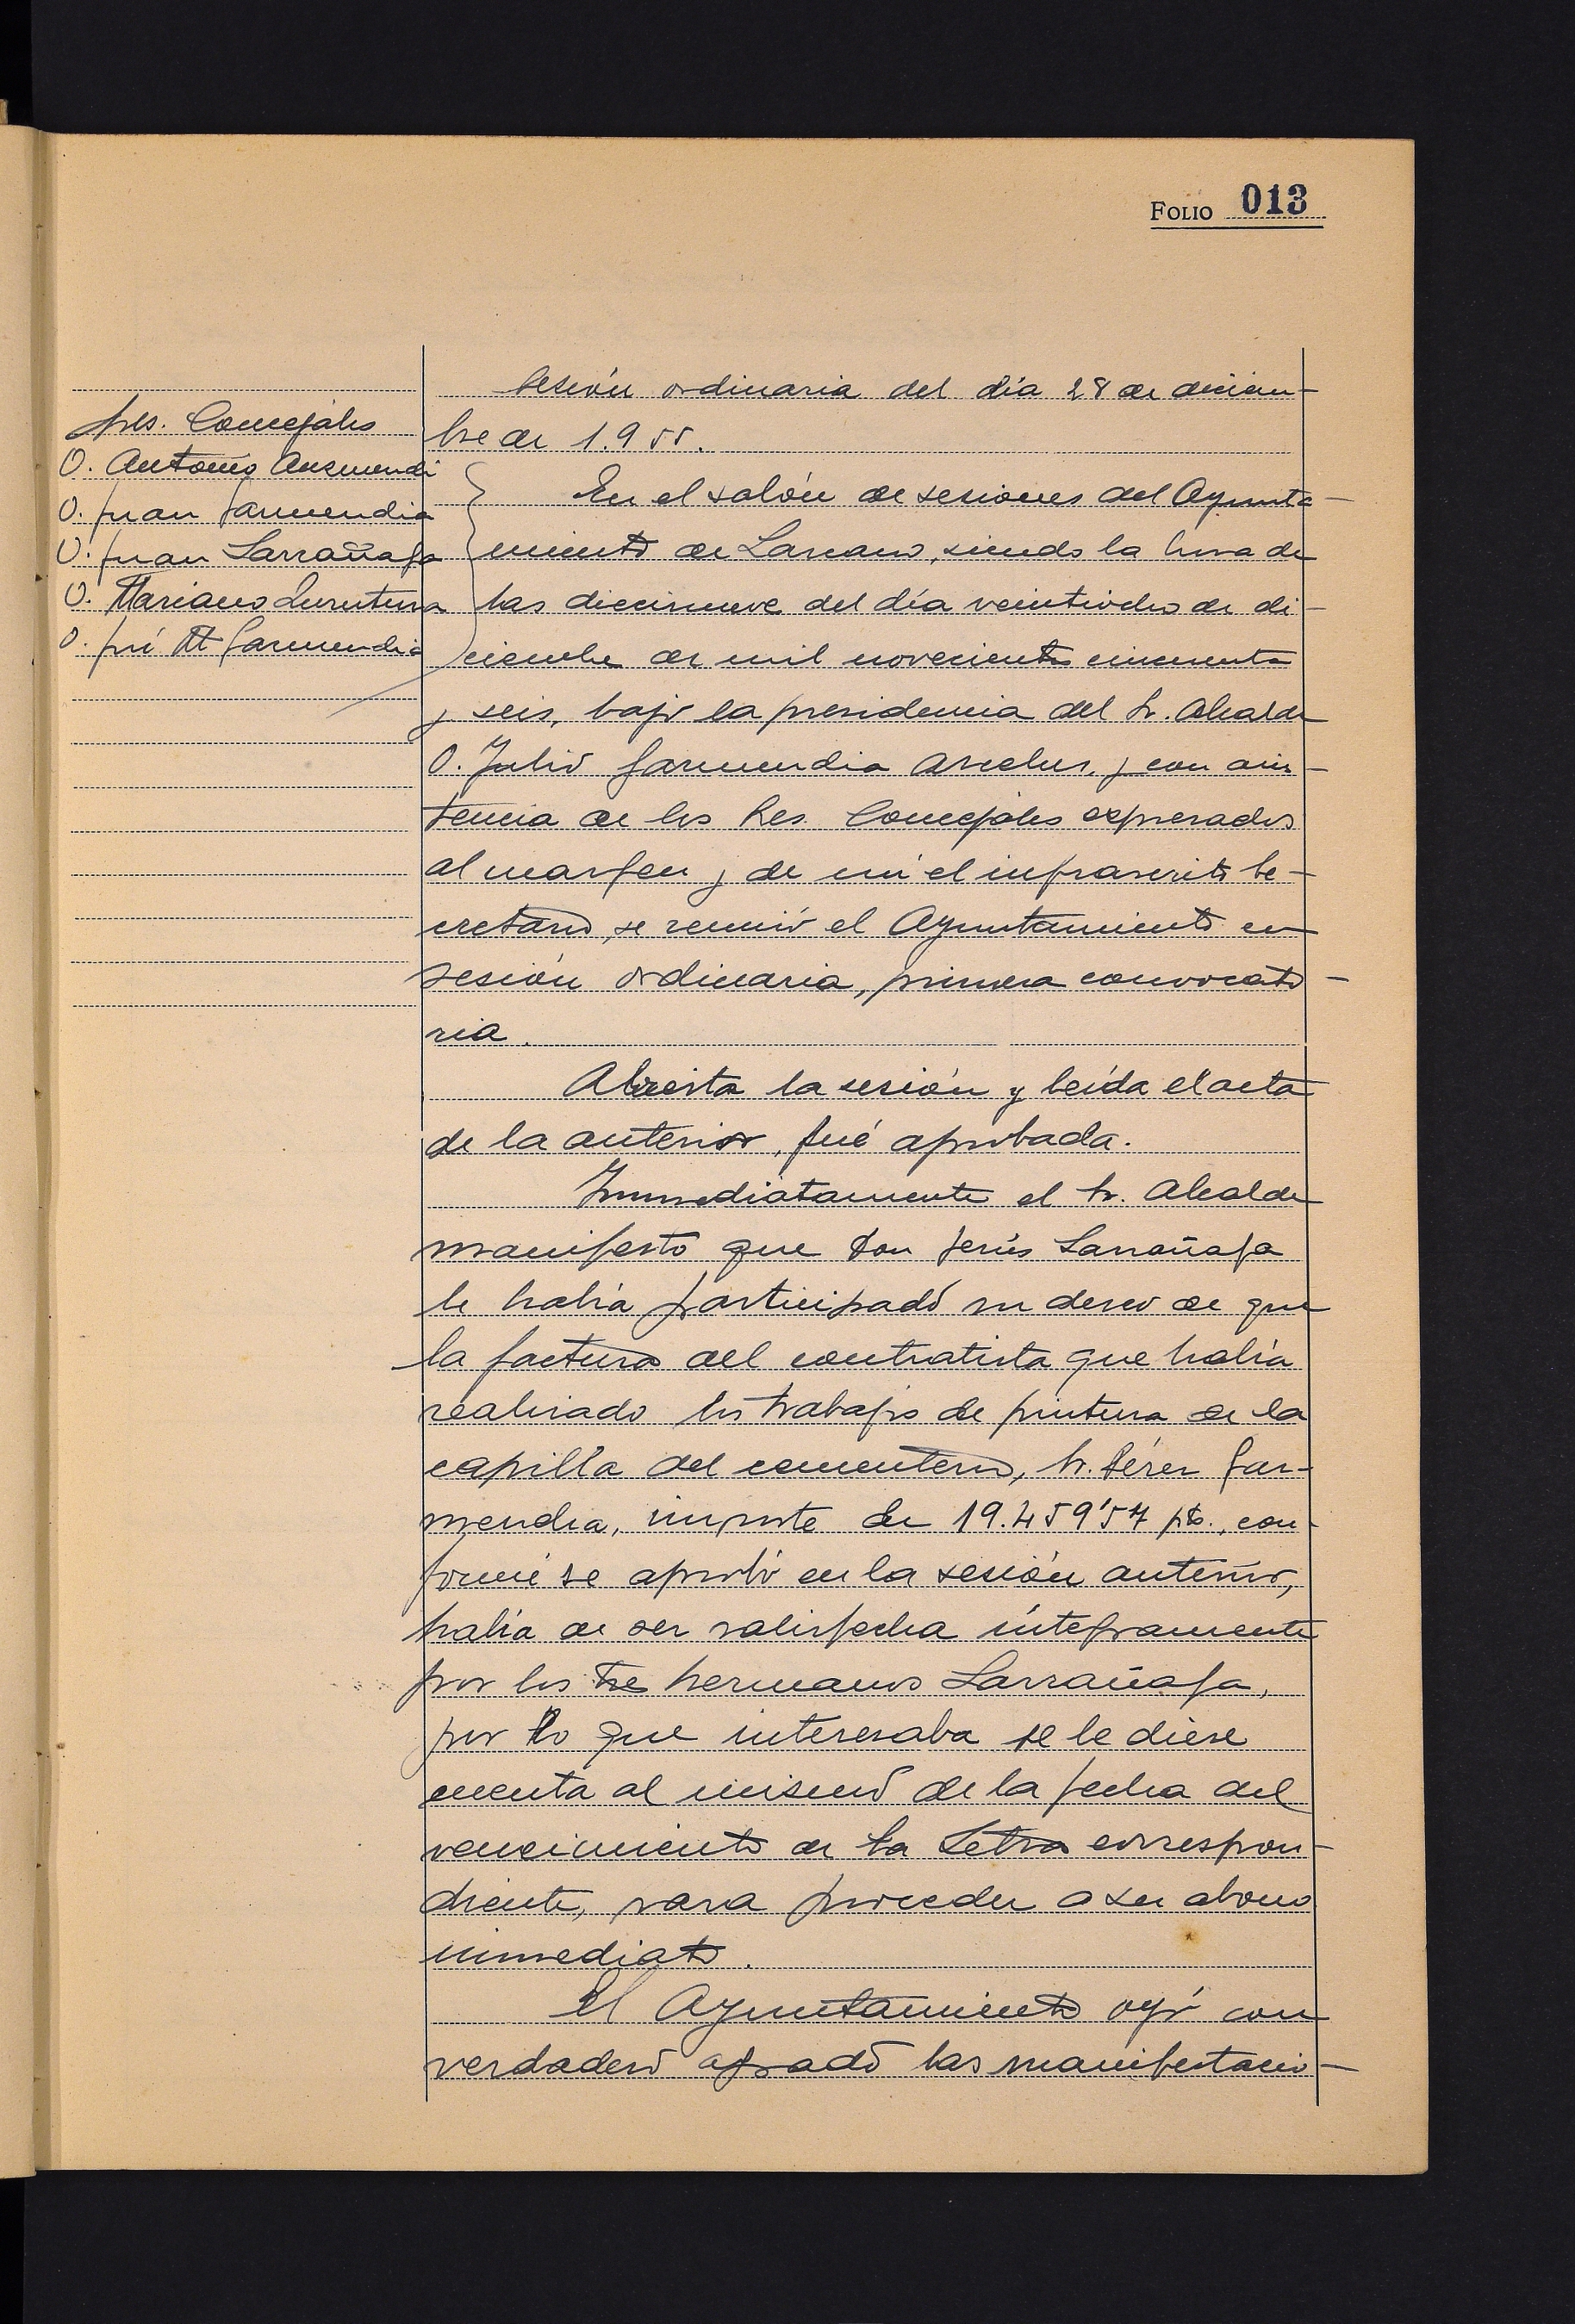 FOLIO 013
Sesión ordinaria del día 28 de diciem-
bre de 1.955.
Sres. Concejales
D. Antonio Auzmendi
D. Juan Garmendia
D. Juan Larrañaga
D. Mariano
D. José Mª Garmendia
En el salón de sesiones del Ayunta-
miento de Lazcano, siendo la hora de
las diecinueve del día veintiocho de di-
ciembre de mil novecientos cincuenta
y seis, bajo la presidencia del Sr. Alcalde
D. Julio Garmendia Arcelus, y con asis-
tencia de los Sres. Concejales expresados
al margen y de mí el infrascrito Se-
cretario, se reunió el Ayuntamiento en
sesión ordinaria, primera convocato-
ria.
Abierta la sesión y leída el acta
de la anterior, fué aprobada.
Inmediatamente el Sr. Alcalde
manifestó que Don Jesús Larrañaga
le había participado su deseo de que
la factura del contratista que había
realizado los trabajos de pintura de la
capilla del cementerio, Sr. Pérez Gar-
mendia, importe de 19.459'57 pts., con-
forme se aprobó en la sesión anterior,
había de ser satisfecha íntegramente
por los tres hermanos Larrañaga,
por lo que interesaba se le diese
cuenta al mismo de la fecha del
vencimiento de la Letra correspon-
diente, para proceder a su abono
inmediato.
El Ayuntamiento oyó con
verdadero agrado las manifestacio-